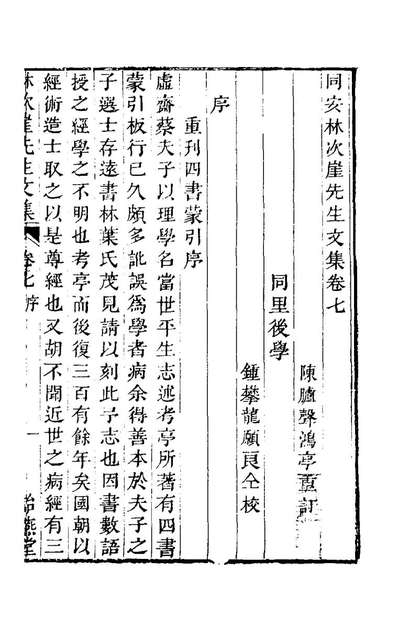 同安林次崖先生文集卷七
陳臚聲鴻亭重訂
同里後學
鍾攀龍願良仝校
序
重刊四書蒙引序
虛齋蔡夫子以理學名當世平生志述考亭所著有四書
蒙引板行已久頗多訛誤為學者病余得善本於夫子之
子選士存遠書林葉氏茂見請以刻此予志也因書數語
授之經學之不明也考亭而後復三百有餘年矣國朝以
經術造士取之以是尊經也又胡不聞近世之病經有三
林次崖先生文集
卷七序
一
詒燕堂